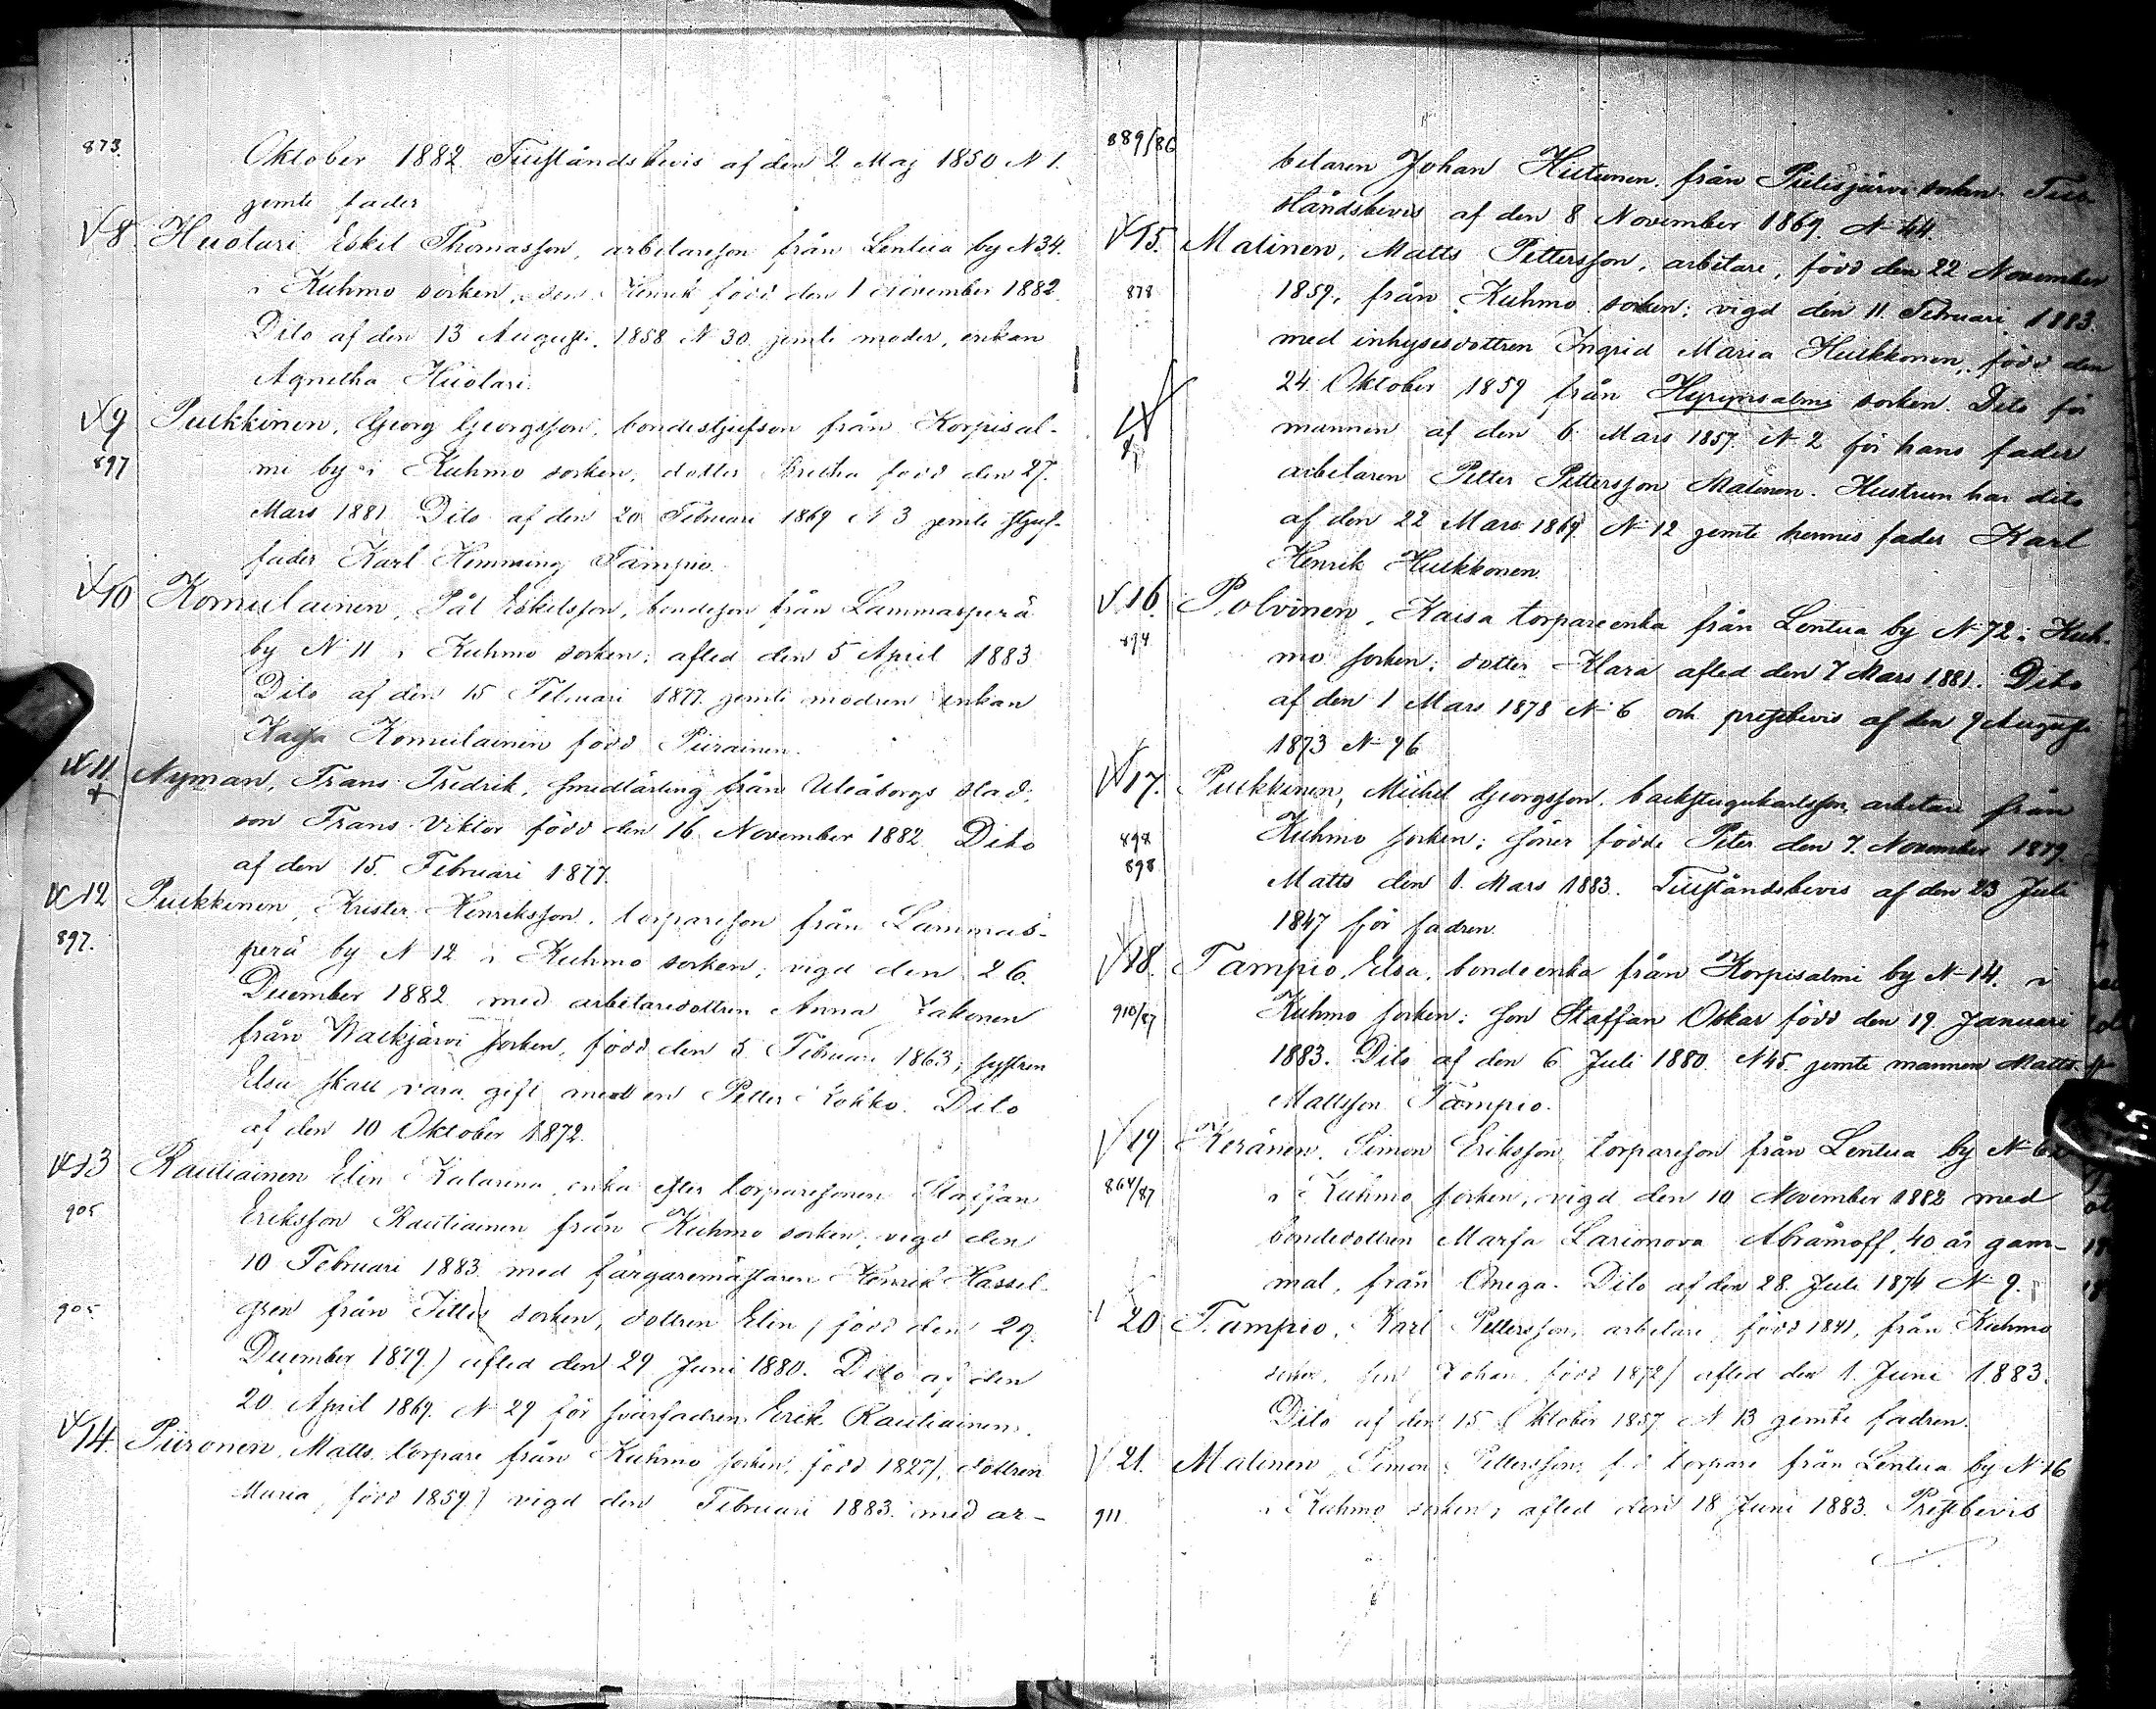 873.
Oktober 1882 Tillståndsbevis af den 2 Maj 1850 N 1.
jemte fader
8 Huotari Eskel Thomasson, arbetareson från Lentua by N 34.
i Kuhmo sorken, son Henrik född den 1 November 1882.
Dito af den 13 Augusti 1858 N 30 jemte moder, enkan
Agnetha Huotari.
9 Pulkkinen, Georg Georgsson, bondestjufson från Korpisal-
897
mi by i Kuhmo sorken, dotter Bretha född den 27.
Mars 1881 Dito af den 20 Februari 1869 N 3 jemte stjuf-
fader Karl Hemming Tampio.
10 Komulainen, Pål Eskelsson, bondeson från Lammasperä
by N 11 i Kuhmo sorken; afled den 5 April 1883
Dito af den 15 Februari 1877 jemte modren enkan
Kajsa Komulainen född Piirainen.
11 Nyman, Frans Fredrik, smedlärling från Uleåborgs stad;
son Frans Viktor född den 16 November 1882. Dito
af den 15. Februari 1877.
12 Pulkkinen, Krister Henriksson, torpareson från Lammas-
897.
perä by N 12 i Kuhmo sorken, vigd den 26.
December 1882 med arbetaredottren Anna Jakonen
från Walkjärvi sorken, född den 5 Februari 1863; systren
Elsa skall vara gift med en Petter Kokko. Dito
af den 10 Oktober 1872.
13 Rautiainen Elin Katarina, enka efter torparesonen Staffan
905
Eriksson Rautiainen från Kuhmo sorken, vigd den
10 Februari 1883 med färgaremästaren Henrik Hassel-
905
gren från Jittis sorken, dottren Elin (född den 29.
December 1879) afled den 29 Juni 1880. Dito af den
20 April 1869. N 29 för svärfadren Erik Rautiainen.
14. Piironen, Matts torpare från Kuhmo sorken, född 1827, dottren
Maria (född 1859) vigd den Februari 1883 med ar-
889/86
betaren Johan Hiltunen från Pielisjärvi sorken. Till-
ståndsbevis af den 8 November 1869. N 44.
15. Malinen, Matts Pettersson, arbetare, född den 22 November
878
1859, från Kuhmo sorken; vigd den 11 Februari 1883
med inhysesdottren Ingrid Maria Hulkkonen, född den
24 Oktober 1859 från Hyrynsalmi sorken. Dito för
mannen af den 6 Mars 1857 N 2 för hans fader
arbetaren Petter Pettersson Malinen. Hustrun har dito
af den 22 Mars 1869 N 12 jemte hennes fader Karl
Henrik Hulkkonen.
16. Polvinen, Kaisa torpareenka från Lentua by N 72 i Kuh-
894
mo sorken; dotter Klara afled den 7 Mars 1881. Dito
af den 1 Mars 1878 N 6 och prestbevis af den 9 Augusti
1873 N 96
17. Pulkkinen, Michel Georgsson, backstugukarlsson, arbetare från
898
Kuhmo sorken; söner födde Peter den 7. November 1879.
898
Matts den 1. Mars 1883. Tillståndsbevis af den 23 Juli
1847 för fadren.
18. Tampio, Elsa, bondeenka från Korpisalmi by N 14. i
910/87
Kuhmo sorken; son Staffan Oskar född den 19 Januari
1883. Dito af den 6 Juli 1880. N 45. jemte mannen Matts
Mattsson Tampio.
19 Keränen, Simon Eriksson, torpareson från Lentua by N 6
864/87
i Kuhmo sorken, vigd den 10 November 1882 med
bondedottren Marfa Larionova Abramoff, 40 år gam-
mal, från Onega. Dito af den 28. Juli 1874 N 9.
20 Tampio, Karl Pettersson, arbetare, född 1841, från Kuhmo
sorken, son Johan född 1872) afled den 1. Juni 1883.
Dito af den 15 Oktober 1857 N 13 jemte fadren.
21. Malinen Simon Pettersson, f.d. torpare från Lentua by N 16
911
i Kuhmo sorken, afled den 18 Juni 1883. Prestbevis